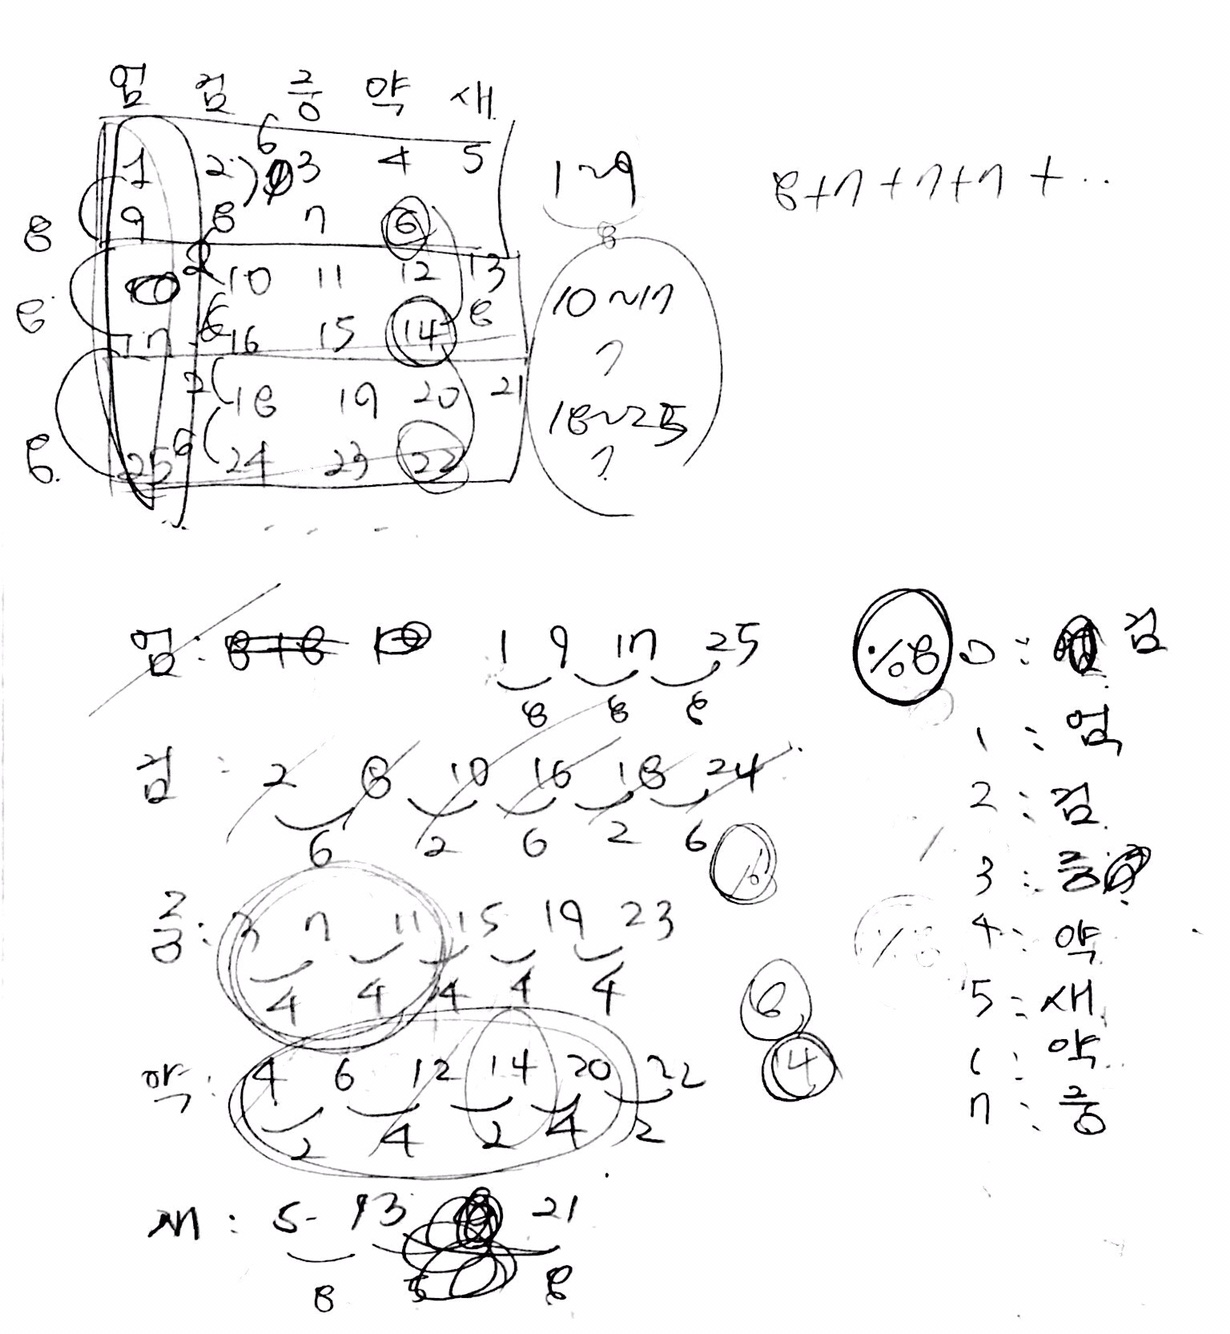 엄 검 중 약 새
1 2 3 4 5
9 8 7 6
10 11 12 13
17 16 15 14
18 19 20 21
25 24 23 22
8
8
8
6
2
6
2
6
8
1~9
8
10~17
?
18~25
?
8+7+7+7+...
... . . .
엄: 8+8 10 1 9 17 25
8 8 8
검: 2 8 10 16 18 24
6 2 6 2 6
중: 3 7 11 15 19 23
4 4 4 4 4
약: 4 6 12 14 20 22
2 4 2 4 2
새: 5 13 21
8 8
6
14
%8 0: 검
1: 엄
2: 검
3: 중
4: 약
5: 새
6: 약
7: 중
%8